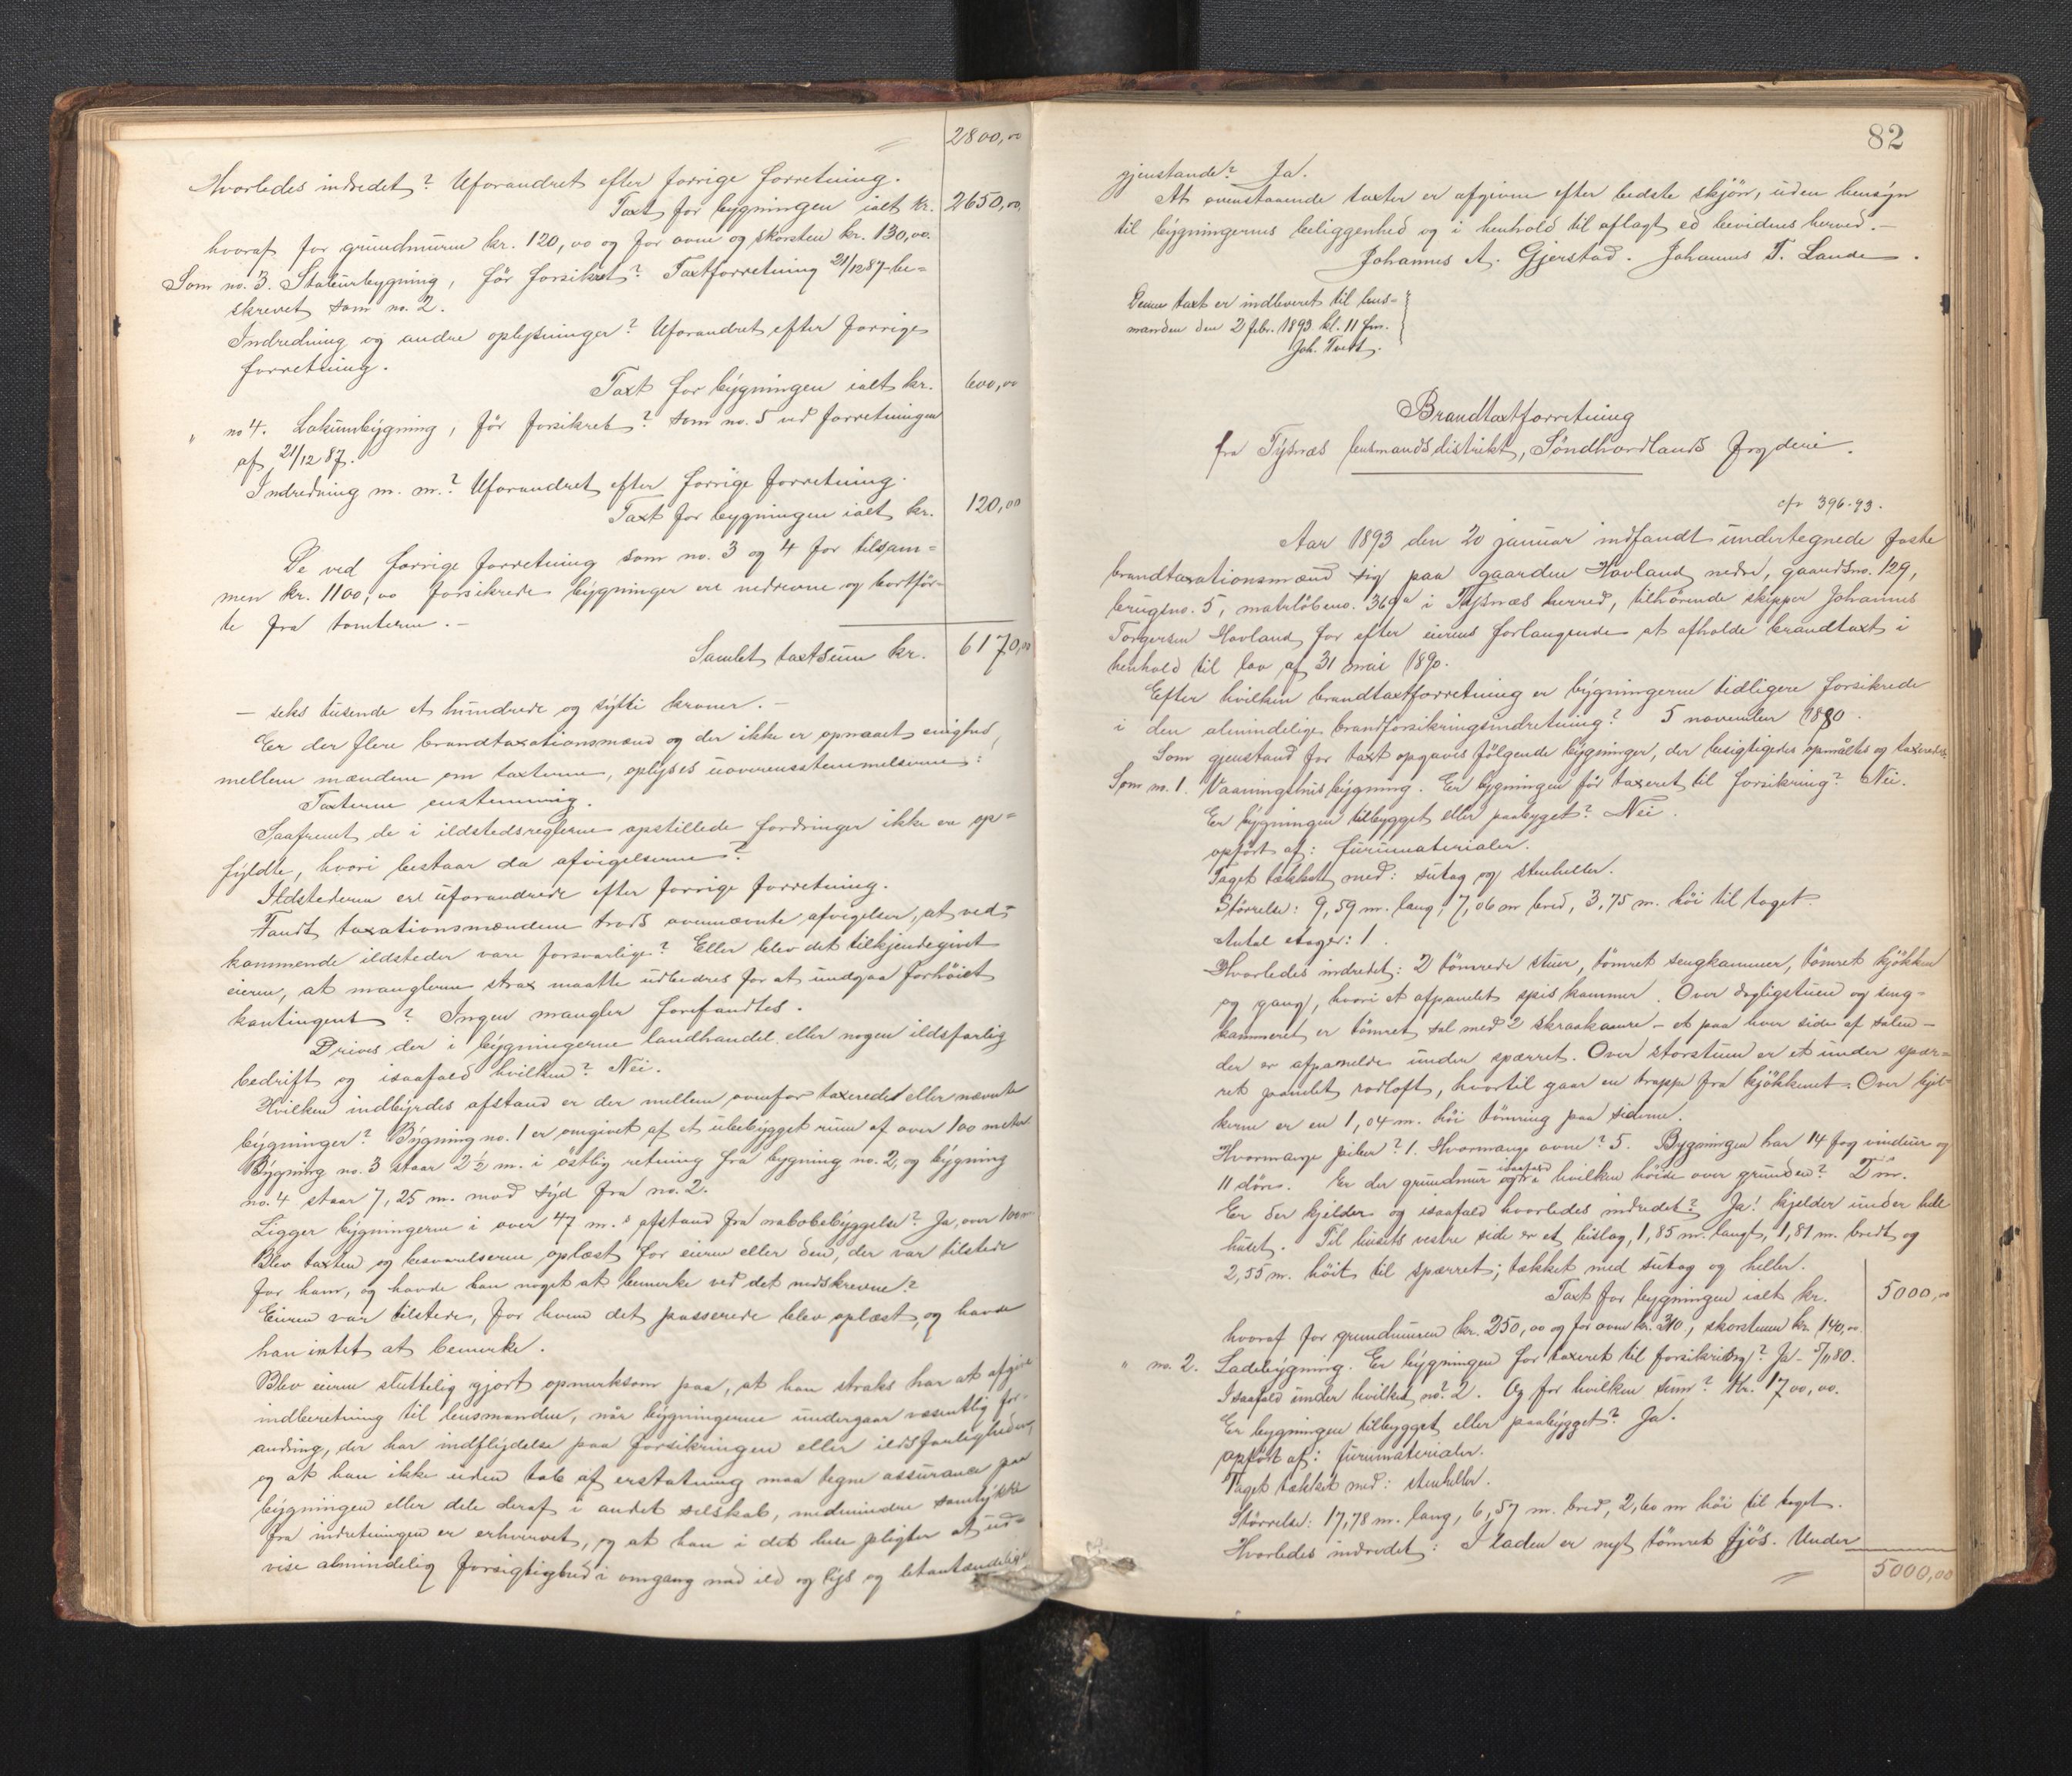 2800,00
Hvorledes indredet? Uforandret efter forrige forretning.
Taxt for bygningen ialt kr. 2650,00
hvoraf for grundmuren kr. 120,00 og for ovne og skorsten kr. 130,00.
Som no. 3. Stabursbygning, før forsikret? Taxtforretning 21/12 87 be-
skrevet som no. 2.
Indredning og andre oplysninger? Uforandret efter forrige
forretning.
Taxt for bygningen ialt kr. 600,00
" no 4. Lokumbygning, før forsikret? som no. 5 ved forretningen
af 21/12 87.
Indredning m. m.? Uforandret efter forrige forretning.
Taxt for bygningen ialt kr. 120,00
De ved forrige forretning som no. 3 og 4 for tilsam-
men kr. 1100,00 forsikrede bygninger ere nedrevne og bortfør-
te fra tomterne. -
Samlet taxtsum kr. 6170,00
- seks tusende et hundrede og sytti kroner. -
Er der flere brandtaxationsmænd og der ikke er opnaaet enighed
mellem mændene om taxterne, oplyses uoverensstemmelserne:
Taxterne enstemmig.
Saafremt de i ildstedsreglerne opstillede fordringer ikke ere op-
fyldte, hvori bestaar da afvigelserne?
Ildstederne ere uforandrede efter forrige forretning.
Fandt taxationsmændene trods ovennævnte afvigelser, at ved-
kommende ildsteder vare forsvarlige? Eller blev det tilkjendegivet
eieren, at manglerne strax maatte udbedres for at undgaa forhøiet
kontingent? Ingen mangler forefandtes.
Drives der i bygningerne landhandel eller nogen ildsfarlig
bedrift og isaafald hvilken? Nei.
Hvilken indbyrdes afstand er der mellem ovenfor taxerede eller nævnte
bygninger? Bygning no. 1 er omgivet af et ubebygget rum af over 100 meter
Bygning no. 3 staar 2 1/2 m. i østlig retning fra bygning no. 2, og bygning
no. 4 staar 7,25 m. mod syd fra no. 2.
Ligger bygningerne i over 47 m.s afstand fra nabobebyggelse? Ja, over 100 m.
Blev taxten og besvarelserne oplæst for eieren eller den, der var tilstede
for ham, og havde han noget at bemerke ved det nedskrevne?
Eieren var tilstede, for hvem det passerede blev oplæst, og havde
han intet at bemerke.
Blev eieren sluttelig gjort opmerksom paa, at han straks har at afgive
indberetning til lensmanden, når bygningerne undergaar væsentlig for-
andring, der har indflydelse paa forsikringen eller ildsfarligheden,
og at han ikke uden tab af erstatning maa tegne assurance paa
bygningen eller dele deraf i andet selskab, medmindre samtykke
fra indretningen er erhvervet, og at han i det hele pligter at ud-
vise almindelig forsigtighed i omgang med ild og lys og letantændelige
82
gjenstande? Ja.
At ovenstaaende taxter er afgivne efter bedste skjøn, uden hensyn
til bygningernes beliggenhed og i henhold til aflagt ed bevidnes herved. -
Johannes A. Gjerstad. Johannes T. Lande.
Denne taxt er indleveret til lens-
manden den 2 febr. 1893 kl. 11 fm.
Joh. Tveit.
Brandtaxtforretning
fra Tysnæs lensmandsdistrikt, Søndhordlands fogderi.
cfr 396-93.
Aar 1893 den 20 januar indfandt undertegnede faste
brandtaxationsmænd sig paa gaarden Hovland nedre, gaardsno. 129,
brugsno. 5, matrløbeno. 369a i Tysnæs herred, tilhørende skipper Johannes
Torgersen Hovland for efter eierens forlangende at afholde brandtaxt i
henhold til lov af 31 mai 1890.
Efter hvilken brandtaxtforretning er bygningerne tidligere forsikrede
i den almindelige brandforsikringsindretning? 5 november 1880.
Som gjenstand for taxt opgaves følgende bygninger, der besigtigedes opmåltes og taxeredes.
Som no. 1. Vaaningshusbygning. Er bygningen før taxeret til forsikring? Nei.
Er bygningen tilbygget eller paabyget? Nei.
opført af: furumaterialer.
Taget tækket med: sutag og stenheller.
Størrelse: 9,59 m. lang, 7,06 m bred, 3,75 m. høi til taget.
Antal etager: 1.
Hvorledes indredet: 2 tømrede stuer, tømret sengkammer, tømret kjøkken
og gang, hvori et afpanelet spiskammer. Over dagligstuen og seng-
kammeret er tømret sal med 2 skraakamre - et paa hver side af salen -
der er afpanelede under spærret. Over storstuen er et under spær-
ret panelet rodloft, hvortil gaar en trappe fra kjøkkenet. Over kjøk-
kenet er en 1,04 m. høi tømring paa siderne.
Hvormange piber? 1. Hvormange ovne? 5. Bygningen har 14 fag vinduer og
11 døre. Er der grundmur og isaafald i hvilken høide over grunden? 2 m.
Er der kjelder og isaafald hvorledes indredet? Ja! kjelder under hele
huset. Til husets vestre side er et bislag, 1,85 m. langt, 1,81 m. bredt og
2,55 m. høit til spærret; tækket med sutag og heller.
Taxt for bygningen ialt kr. 5000,00
hvoraf for grundmuren kr. 250,00 og for ovne kr. 310, skorstenen kr. 140,00.
" no. 2. Ladebygning. Er bygningen før taxeret til forsikring? Ja - 5/11 80.
Isaafald under hvilket no? 2. Og for hvilken sum? Kr. 1700,00.
Er bygningen tilbygget eller paabygget? Ja.
opført af: furumaterialer.
Taget tækket med: stenheller.
Størrelse: 17,78 m. lang, 6,57 m. bred, 2,60 m høi til taget.
Hvorledes indredet: I laden er nyt tømret fjøs. Under
5000,00